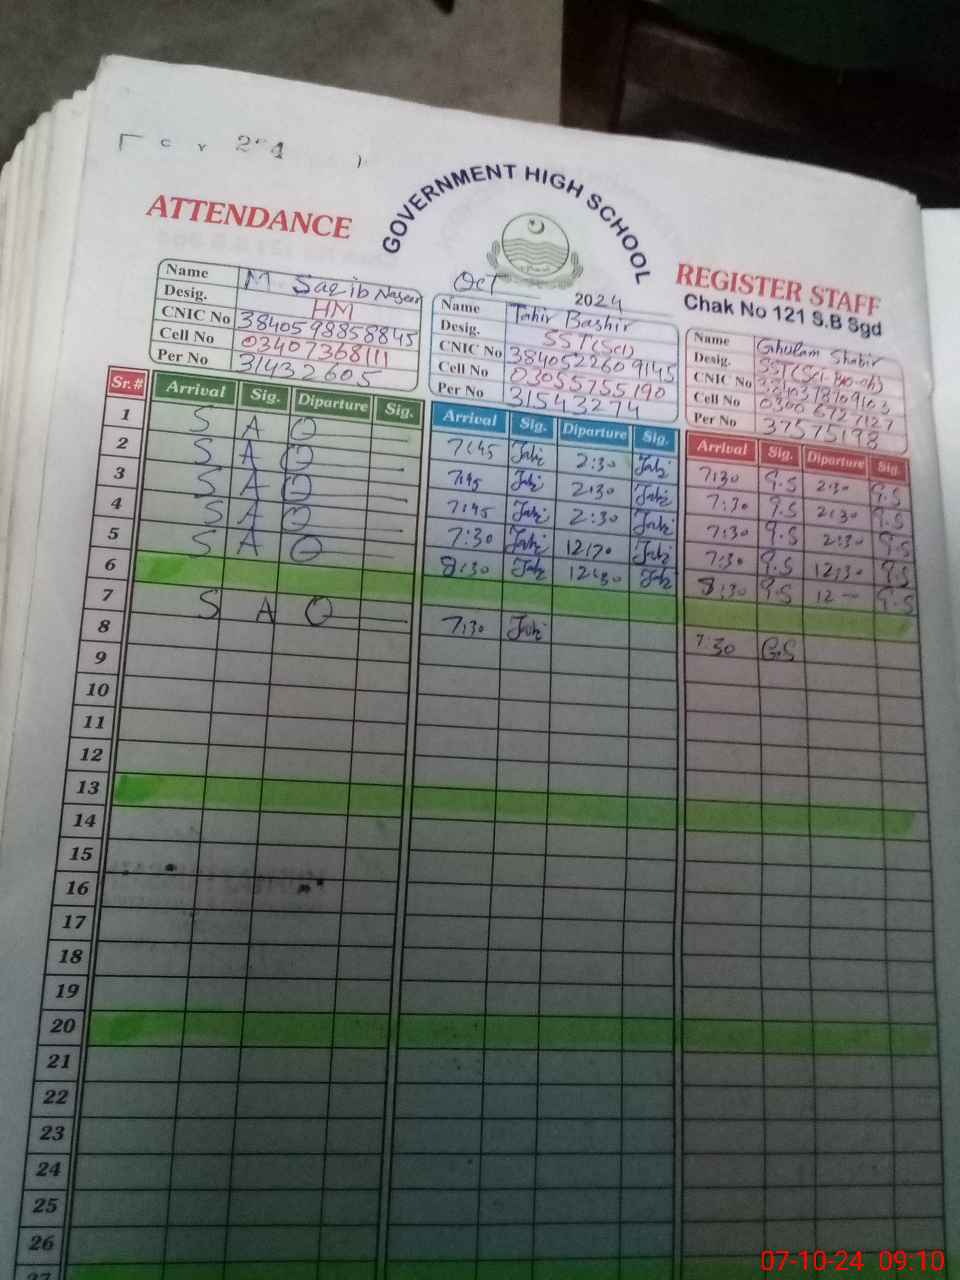 GOVERNMENT HIGH SCHOOL
ATTENDANCE
REGISTER STAFF
Oct 2024
Chak No 121 S.B Sgd
Name M Saqib Naseer
Desig. HM
CNIC No 3840598858845
Cell No 03407368111
Per No 31432605
Name Tahir Bashir
Desig. SST(Sci)
CNIC No 3840522609145
Cell No 03055755190
Per No 31543274
Name Ghulam Shabir
Desig. SST(Sci-Bio-ch)
CNIC No
Cell No 0300 6727127
Per No 37575198
Sr.# Arrival Sig. Diparture Sig. Arrival Sig. Diparture Sig. Arrival Sig. Diparture Sig.
1 S A O 7:45 2:30 7:30 G.S 2:30 G.S
2 S A O 7:45 2:30 7:30 G.S 2:30 G.S
3 S A O 7:45 2:30 7:30 G.S 2:30 G.S
4 S A O 7:30 7:30 G.S 12:30 G.S
5 S A O 8:30 12:30 8:30 G.S 12 G.S
6
7 S A O 7:30 7:30 G.S
8
9
10
11
12
13
14
15
16
17
18
19
20
21
22
23
24
25
26
27
07-10-24 09:10